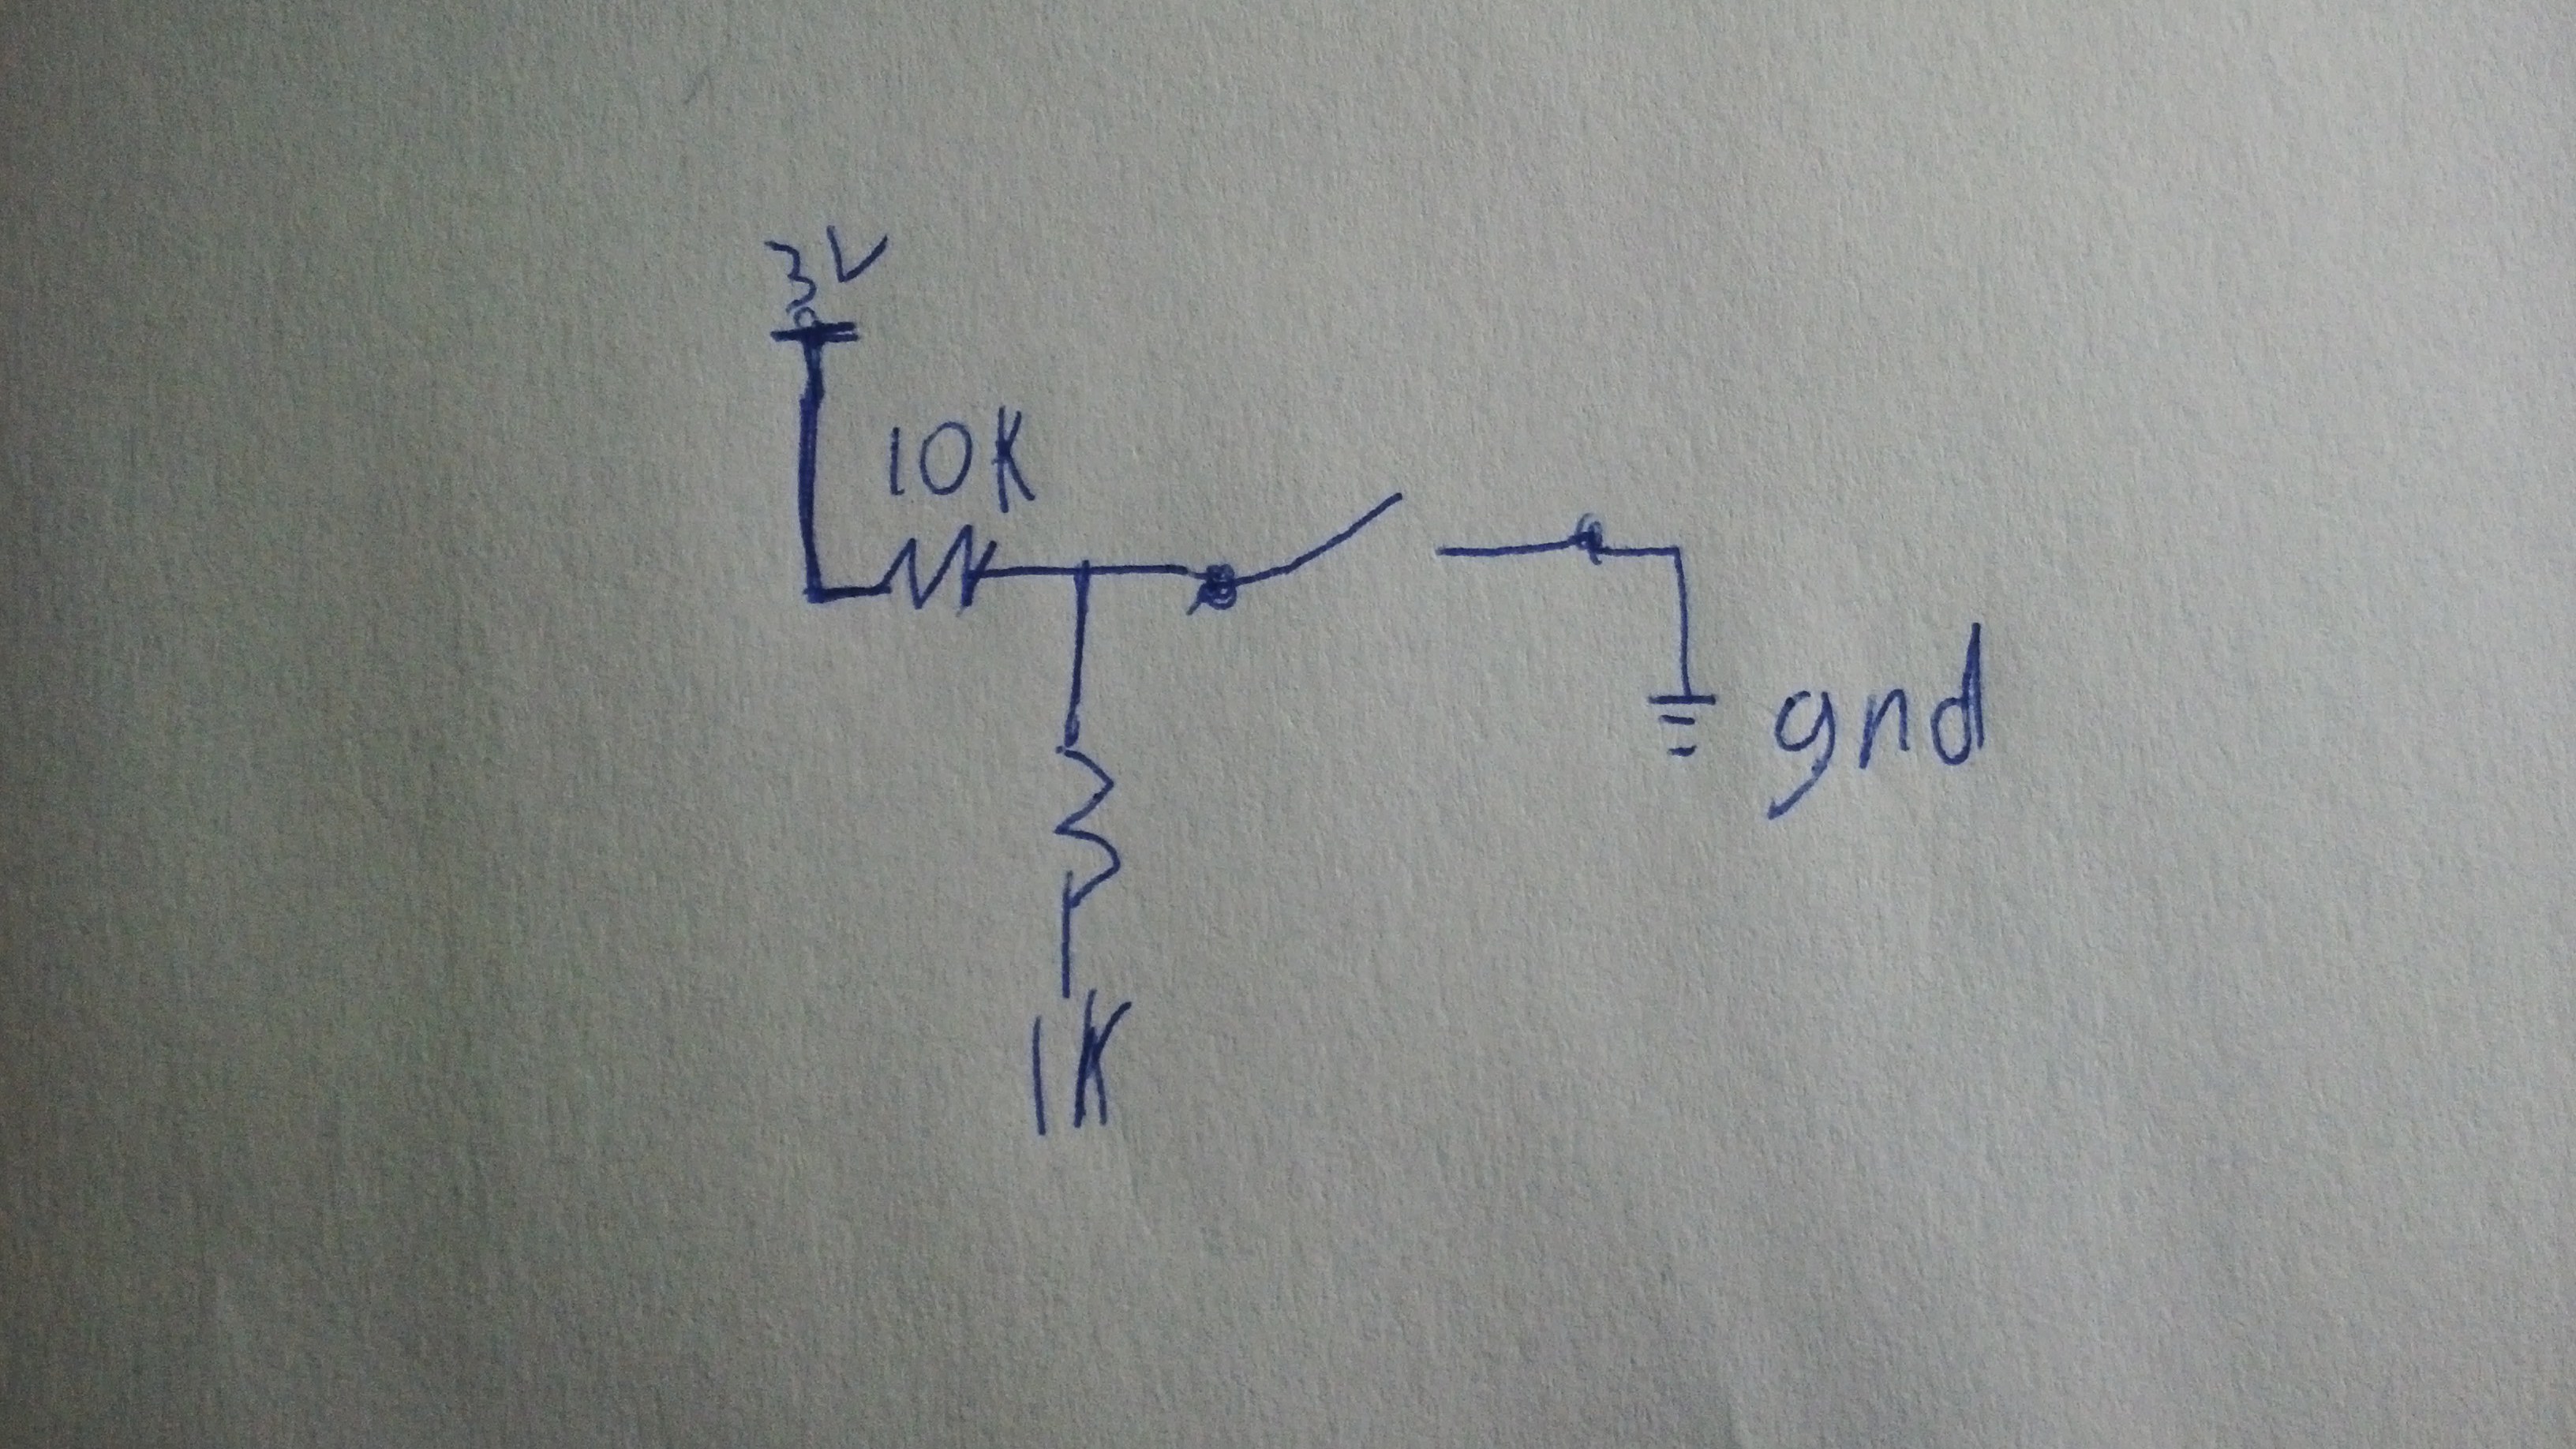 3V
10K
gnd
1K